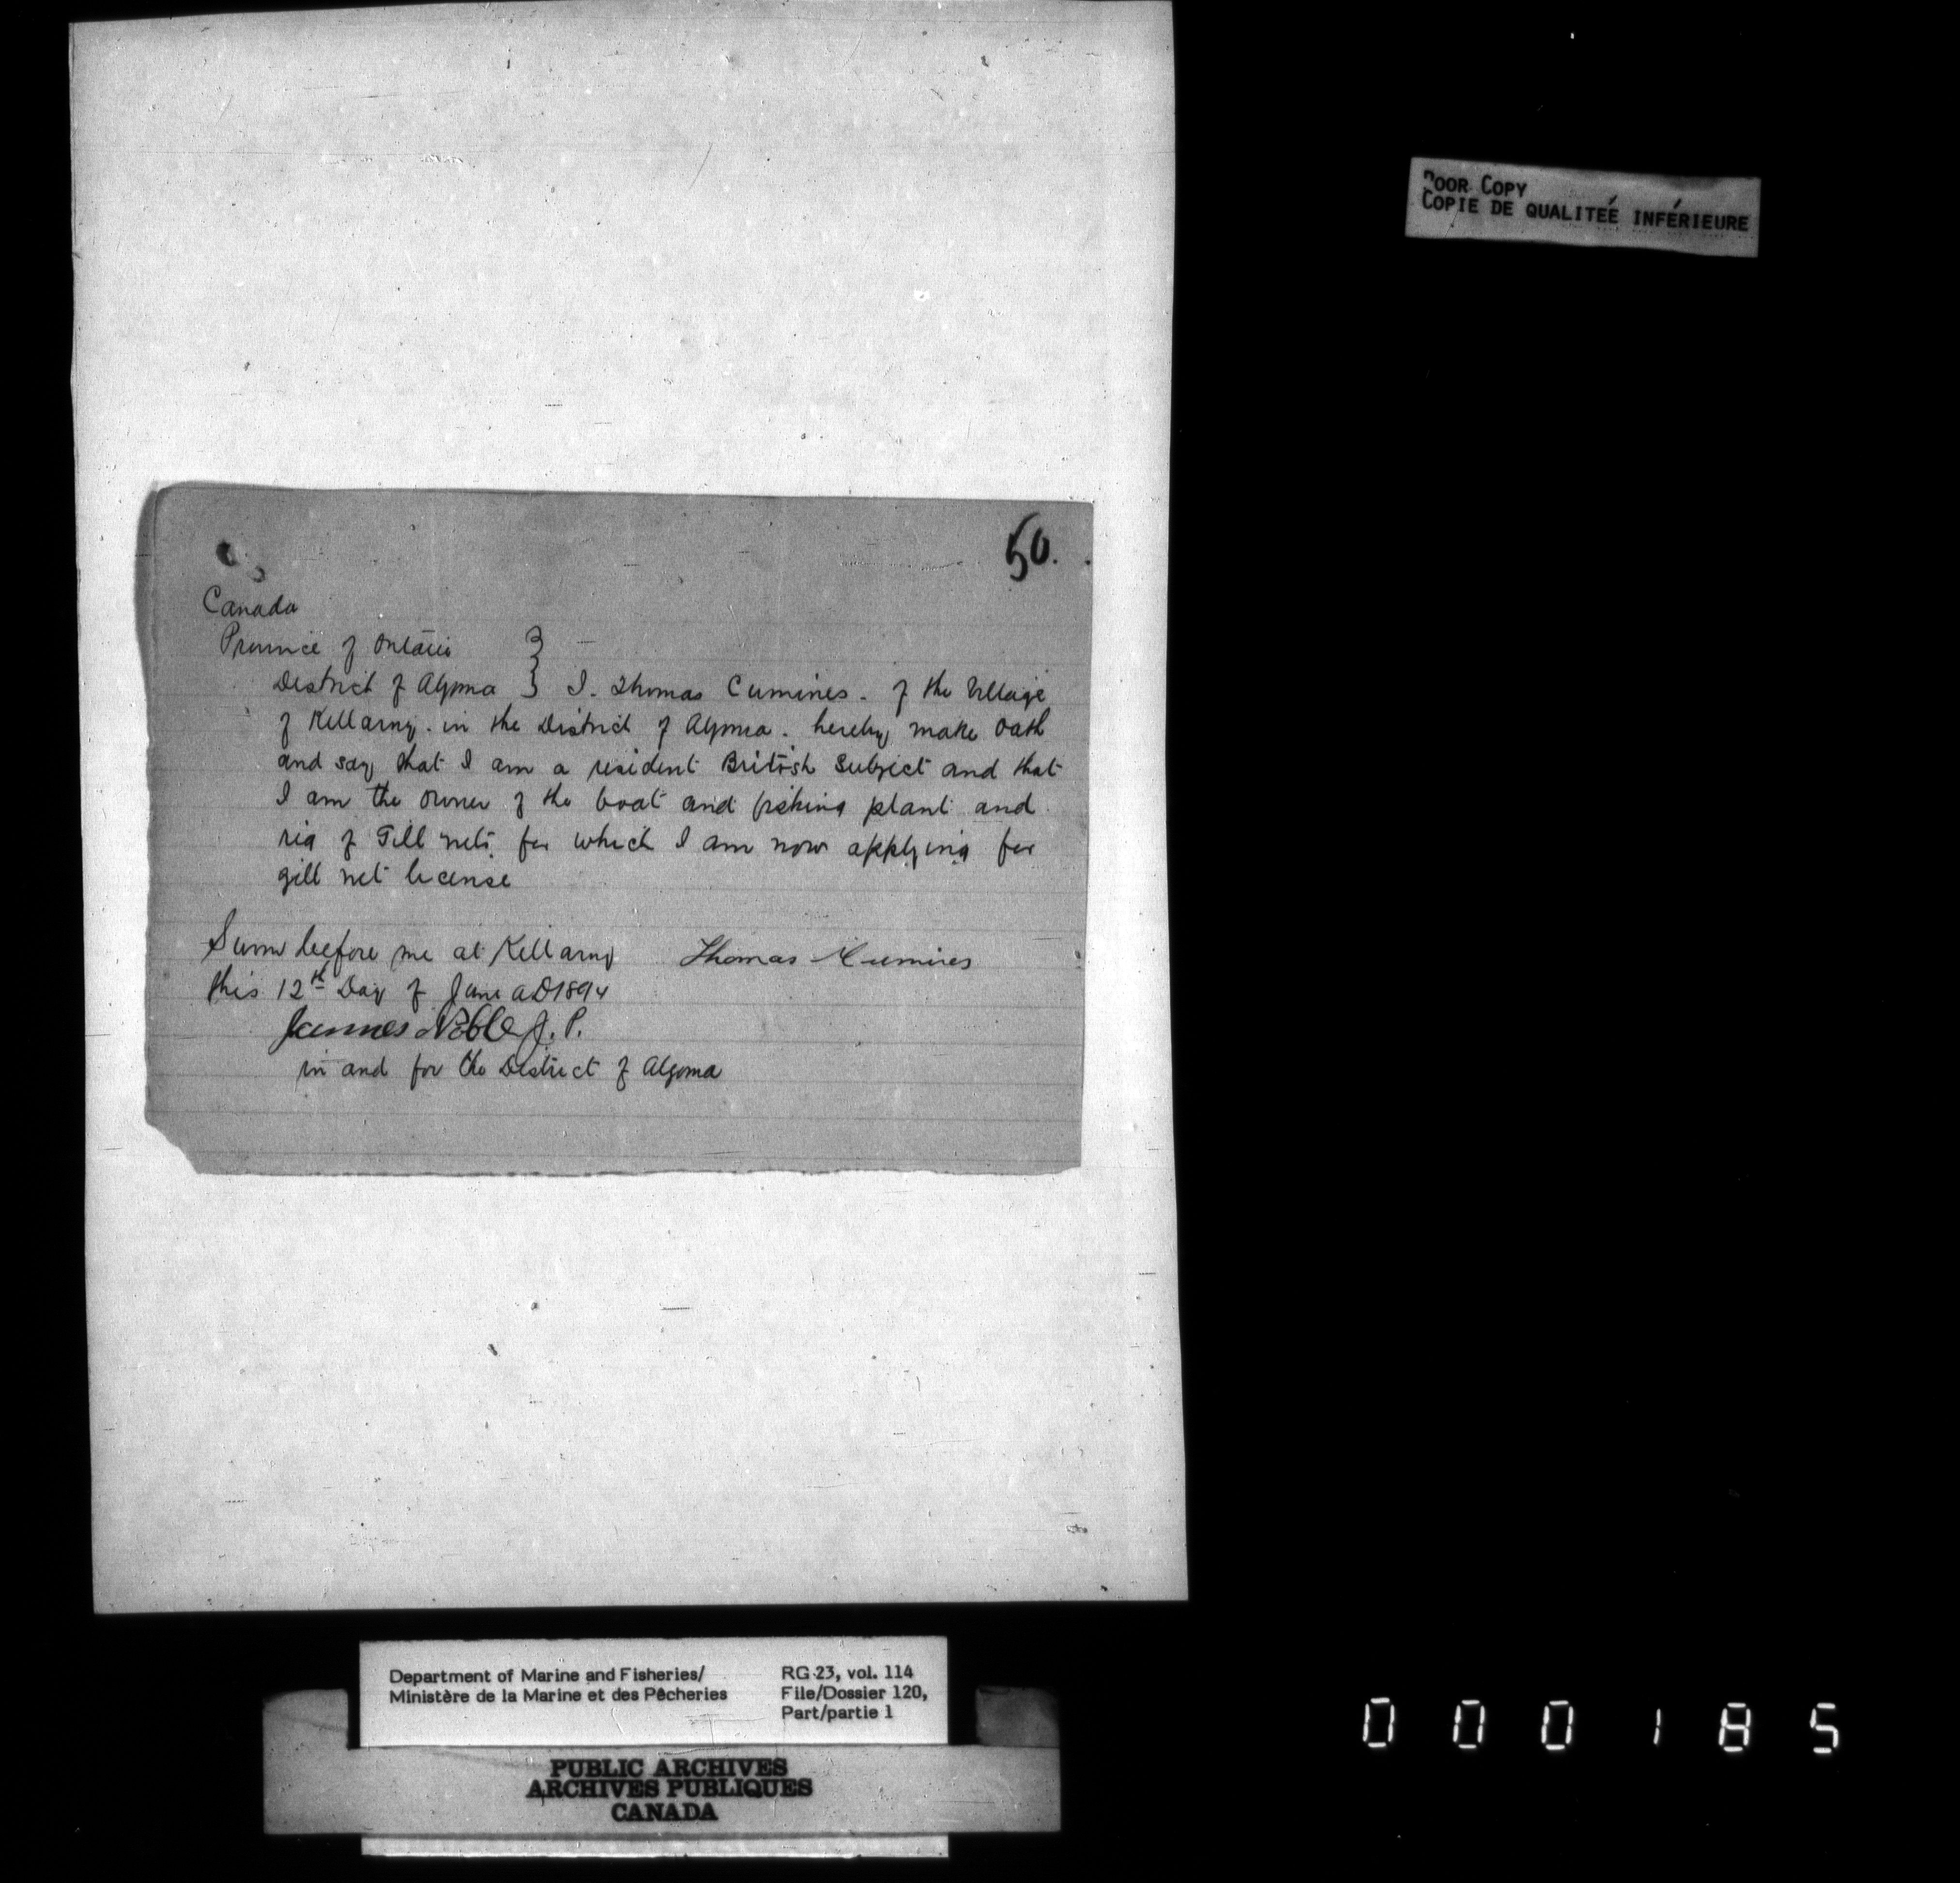 POOR COPY
COPIE DE QUALITEÉ INFÉRIEURE
50.
Canada
Province of Ontario
District of Algoma } I. Thomas Cumines. of the Village
of Killarny. in the District of Algoma. hereby make Oath
and say that I am a resident British Subject and that
I am the owner of the boat and fishing plant and
rig of Gill nets for which I am now applying for
gill net license
Sworn before me at Killarny Thomas Cumines
this 12th Day of June AD 1894
James Noble J. P.
in and for the District of Algoma
Department of Marine and Fisheries/
Ministère de la Marine et des Pêcheries
RG 23, vol. 114
File/Dossier 120,
Part/partie 1
PUBLIC ARCHIVES
ARCHIVES PUBLIQUES
CANADA
000185